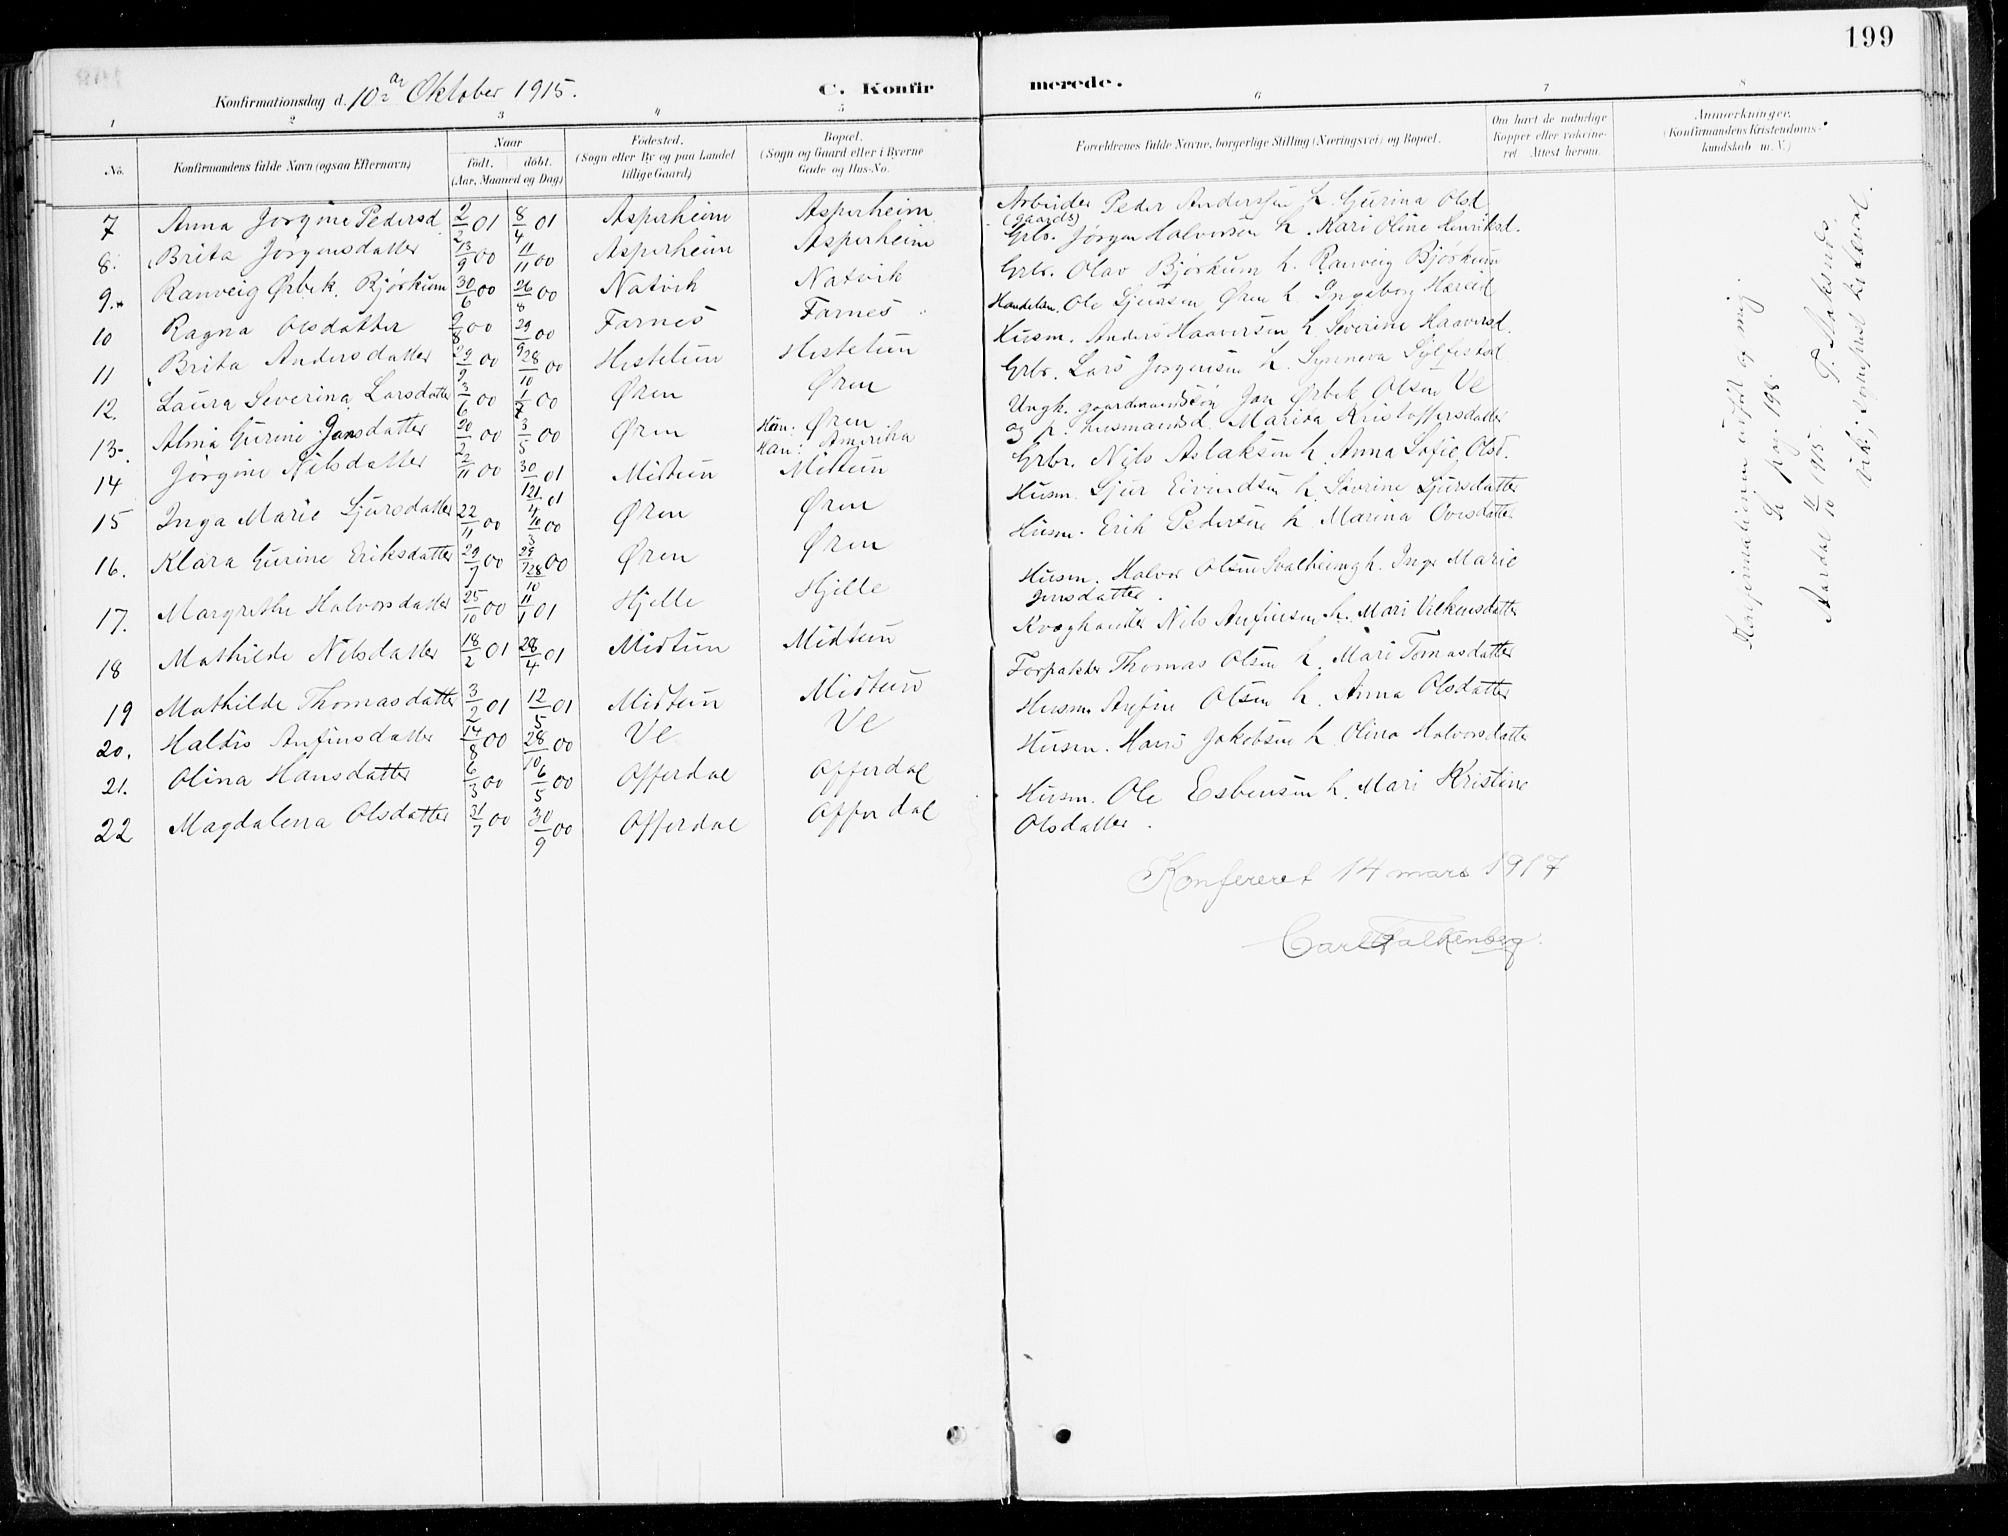 199
Konfirmationsdag d. 10de Oktober 1915.
C. Konfirmerede.
1 2 3 4 5 6 7 8
No.
Konfirmandens fulde Navn (ogsaa Efternavn)
Naar
født. døbt.
(Aar, Maaned og Dag)
Fødested.
(Sogn eller By og paa Landet
tillige Gaard)
Bopæl.
(Sogn og Gaard eller i Byerne
Gade og Hus-No.
Forældrenes fulde Navne, borgerlige Stilling (Næringsvei) og Bopæl.
Om havt de naturlige
Kopper eller vaccine-
ret Attest herom.
Anmærkninger.
(Konfirmandens Kristendoms-
kundskab m. V.)
7 Anna Jorgine Pedersd. 2/2 01 8/4 01 Asperheim Asperheim Arbeider Peder Anderssen h. Gjurina Olsd
8. Brita Jorgensdatter 13/9 00 11/11 00 Asperheim Asperheim (Gaards) Grbr. Jørgen Halvorsen h. Kari Oline Henriksd.
9. Ranveig Ørbek Bjørkum 30/6 00 26/8 00 Natvik Natvik Grbr. Olav Bjørkum h. Ranveig Bjørkum
10 Ragna Olsdatter 9/8 00 29/9 00 Farnes Farnes Handelsm. Ole Sjursen Øren h. Ingeborg Hæreid
11 Brita Andersdatter 29/9 00 28/10 00 Hestetun Hestetun Husm. Anders Haaversen h. Severine Haaversd.
12. Laura Severina Larsdatter 3/6 00 1/7 00 Øren Øren Grbr. Lars Jorgensen h. Synneva Sylfestsd
13. Alma Gurine Jansdatter 20/2 00 3/5 00 Øren Hun: Øren Han: Amerika Ungk. gaardmandssøn Jan Ørbek Olsen Ve
og p. husmandsd. Marita Kristoffersdatter
14 Jörgine Nilsdatter 22/11 00 30/1 01 Midtun Midtun Grbr. Nils Aslaksen h. Anna Sofie Olsd.
15 Inga Marie Sjursdatter 22/11 00 21/4 01 Øren Øren Husm. Sjur Eivindsen h. Severine Sjursdatter
16. Klara Gurine Eriksdatter 29/7 00 Øren Øren Husm. Erik Pedersen h. Marina Ovesdatter
17. Margrethe Halvorsdatter 25/10 00 11/1 01 Hjelle Hjelle Husm. Halvor Olsen Svalheimg h. Inga Marie
Jensdatter.
18 Mathilde Nilsdatter 18/2 01 28/4 01 Midtun Midtun Kvæghandler Nils Anfinsen h. Mari Vilkensdatter
19 Mathilde Thomasdatter 3/2 01 12/5 01 Midtun Midtun Forpakter Thomas Olsen h. Mari Tomasdatter
20. Haldis Anfinsdatter 14/8 00 28/10 00 Ve Ve Husm. Anfin Olsen h. Anna Olsdatter
21. Olina Hansdatter 6/3 00 6/5 00 Offerdal Offerdal Husm. Hans Jakobsen h. Olina Halvorsdatter
22 Magdalena Olsdatter 31/7 00 30/9 00 Offerdal Offerdal Husm. Ole Esbensen h. Mari Kristine
Olsdatter.
Konfereret 14 mars 1917
Carl Falkenberg.
Konfirmationen utført og mig.
Se pag. 198.
Aardal 11/10 1915.